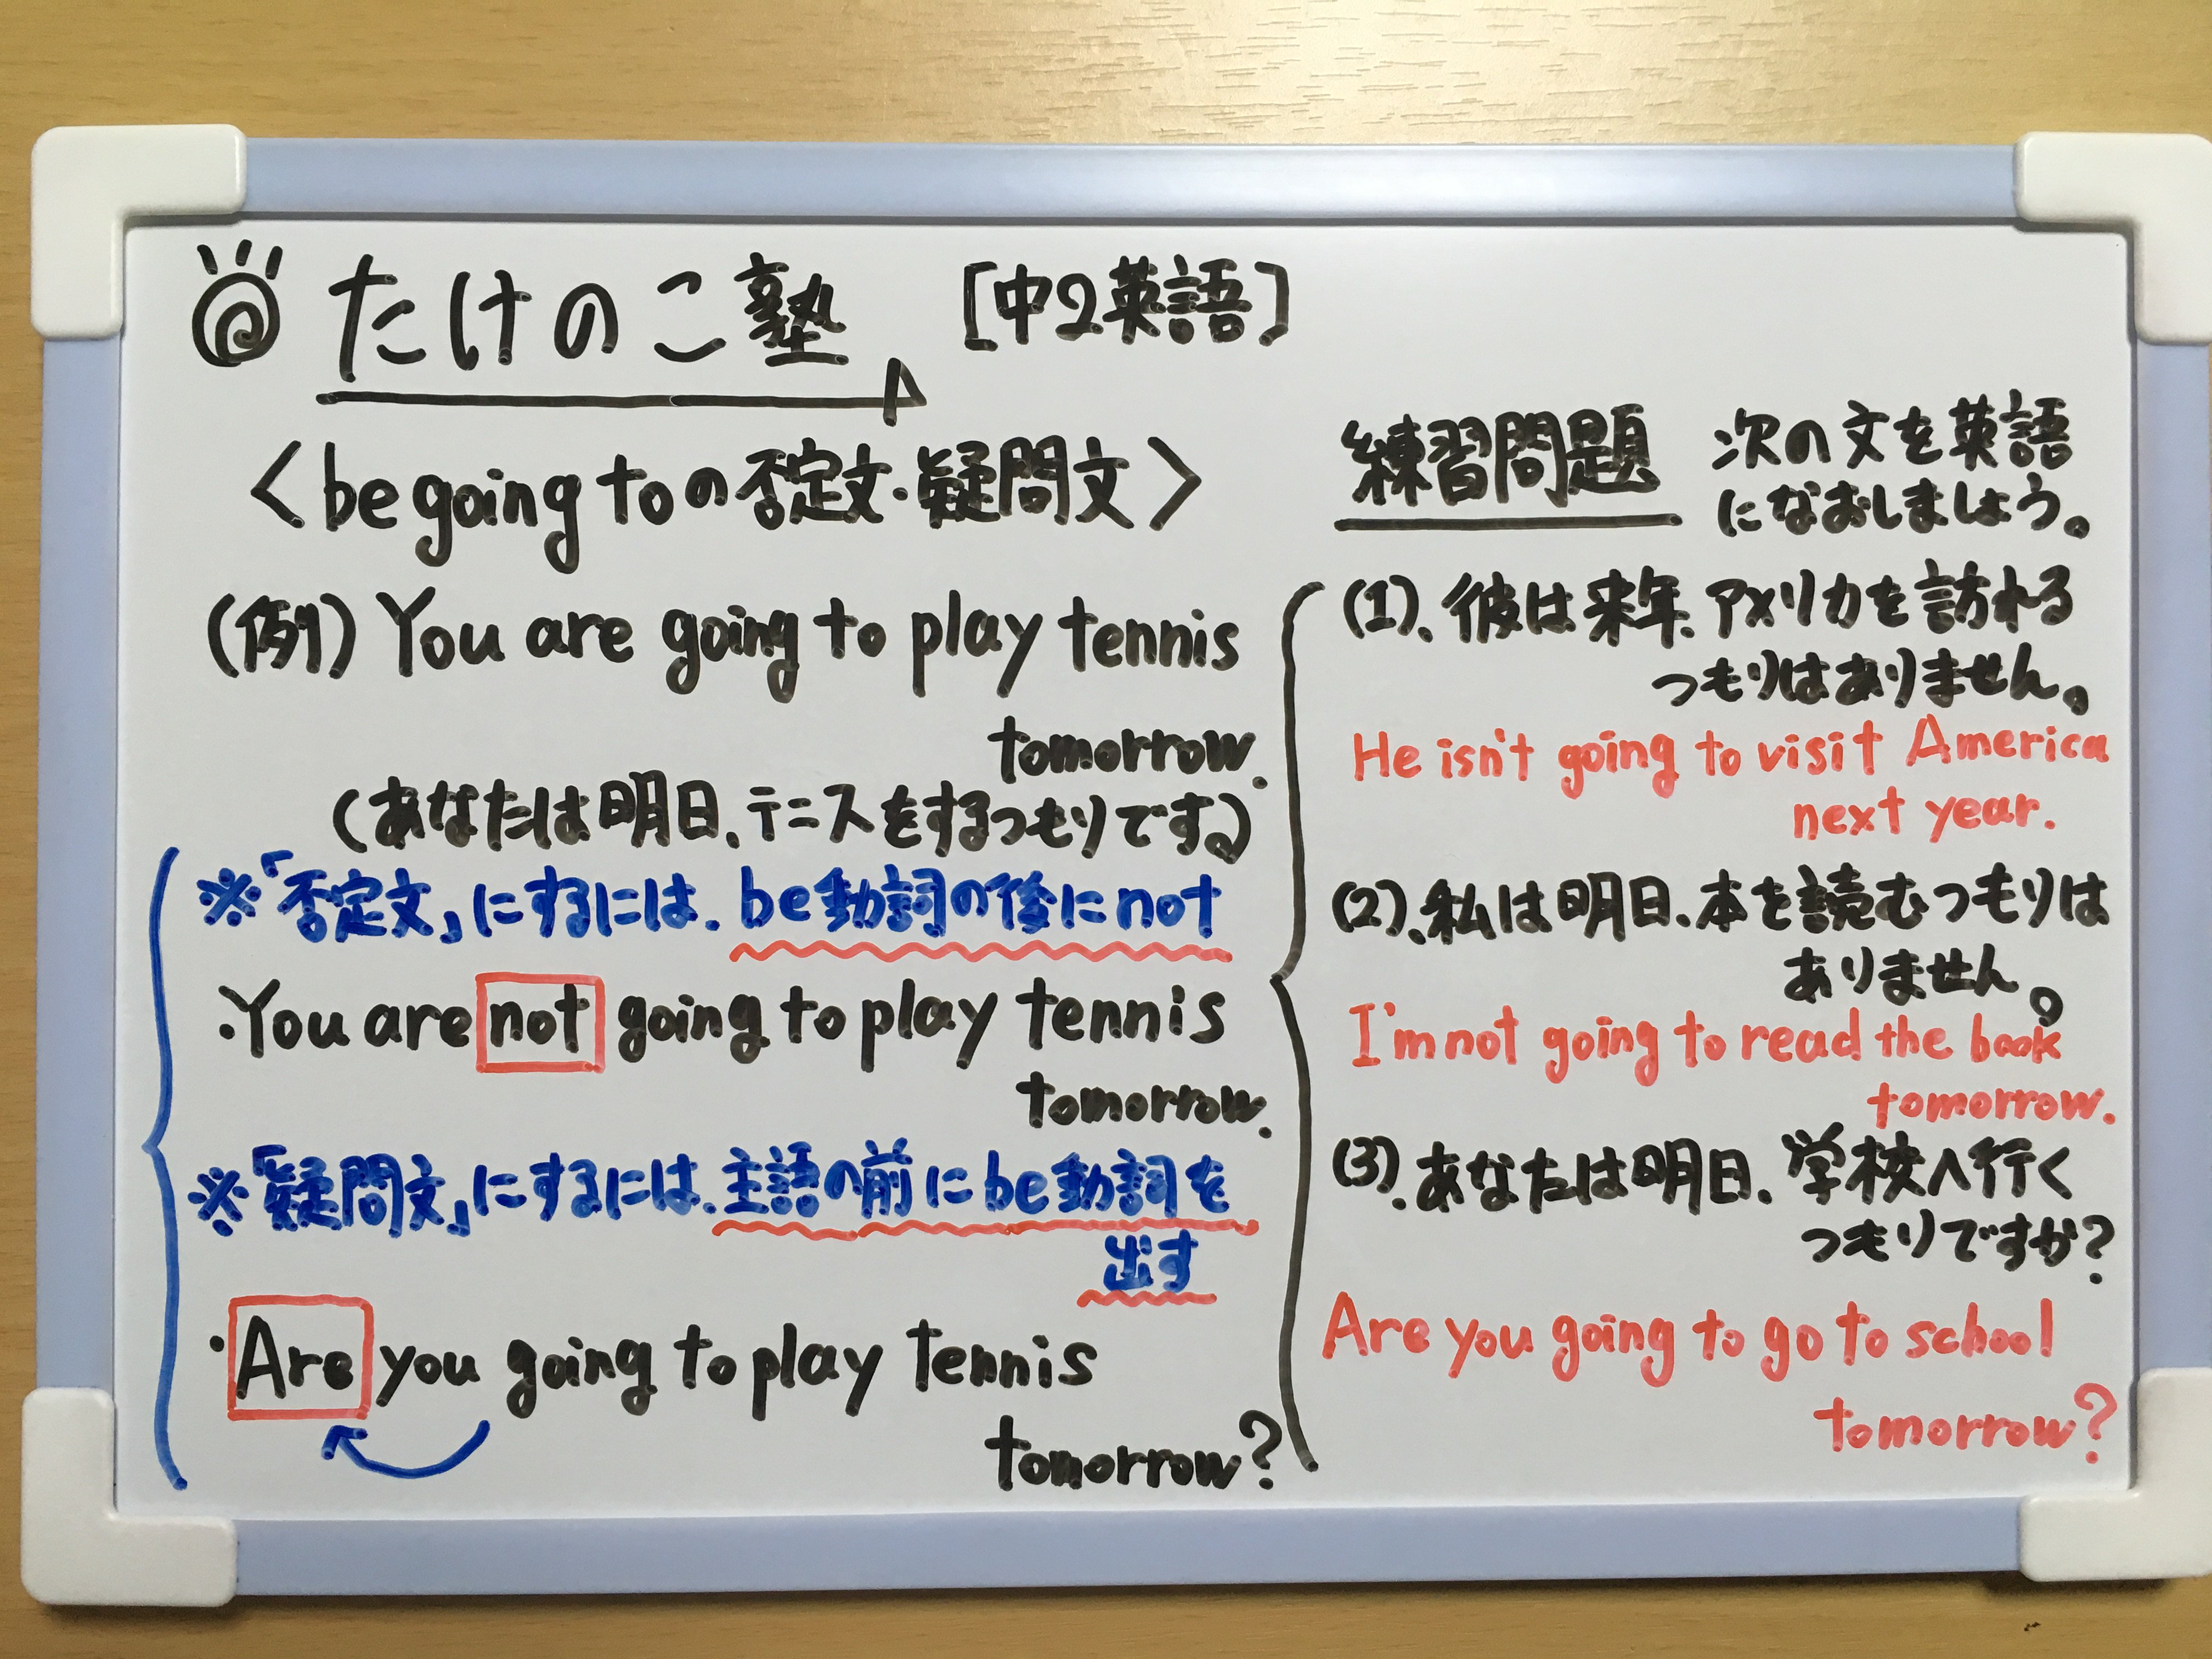 たけのこ塾 [中2英語]
<be going toの否定文・疑問文>
(例) You are going to play tennis
tomorrow.
(あなたは明日、テニスをするつもりです。)
※「否定文」にするには、be動詞の後にnot
・You are not going to play tennis
tomorrow.
※「疑問文」にするには、主語の前にbe動詞を
出す
・Are you going to play tennis
tomorrow?
練習問題 次の文を英語
になおしましょう。
(1)、彼は来年、アメリカを訪れる
つもりはありません。
He isn't going to visit America
next year.
(2)、私は明日、本を読むつもりは
ありません。
I'm not going to read the book
tomorrow.
(3)、あなたは明日、学校へ行く
つもりですか?
Are you going to go to school
tomorrow?